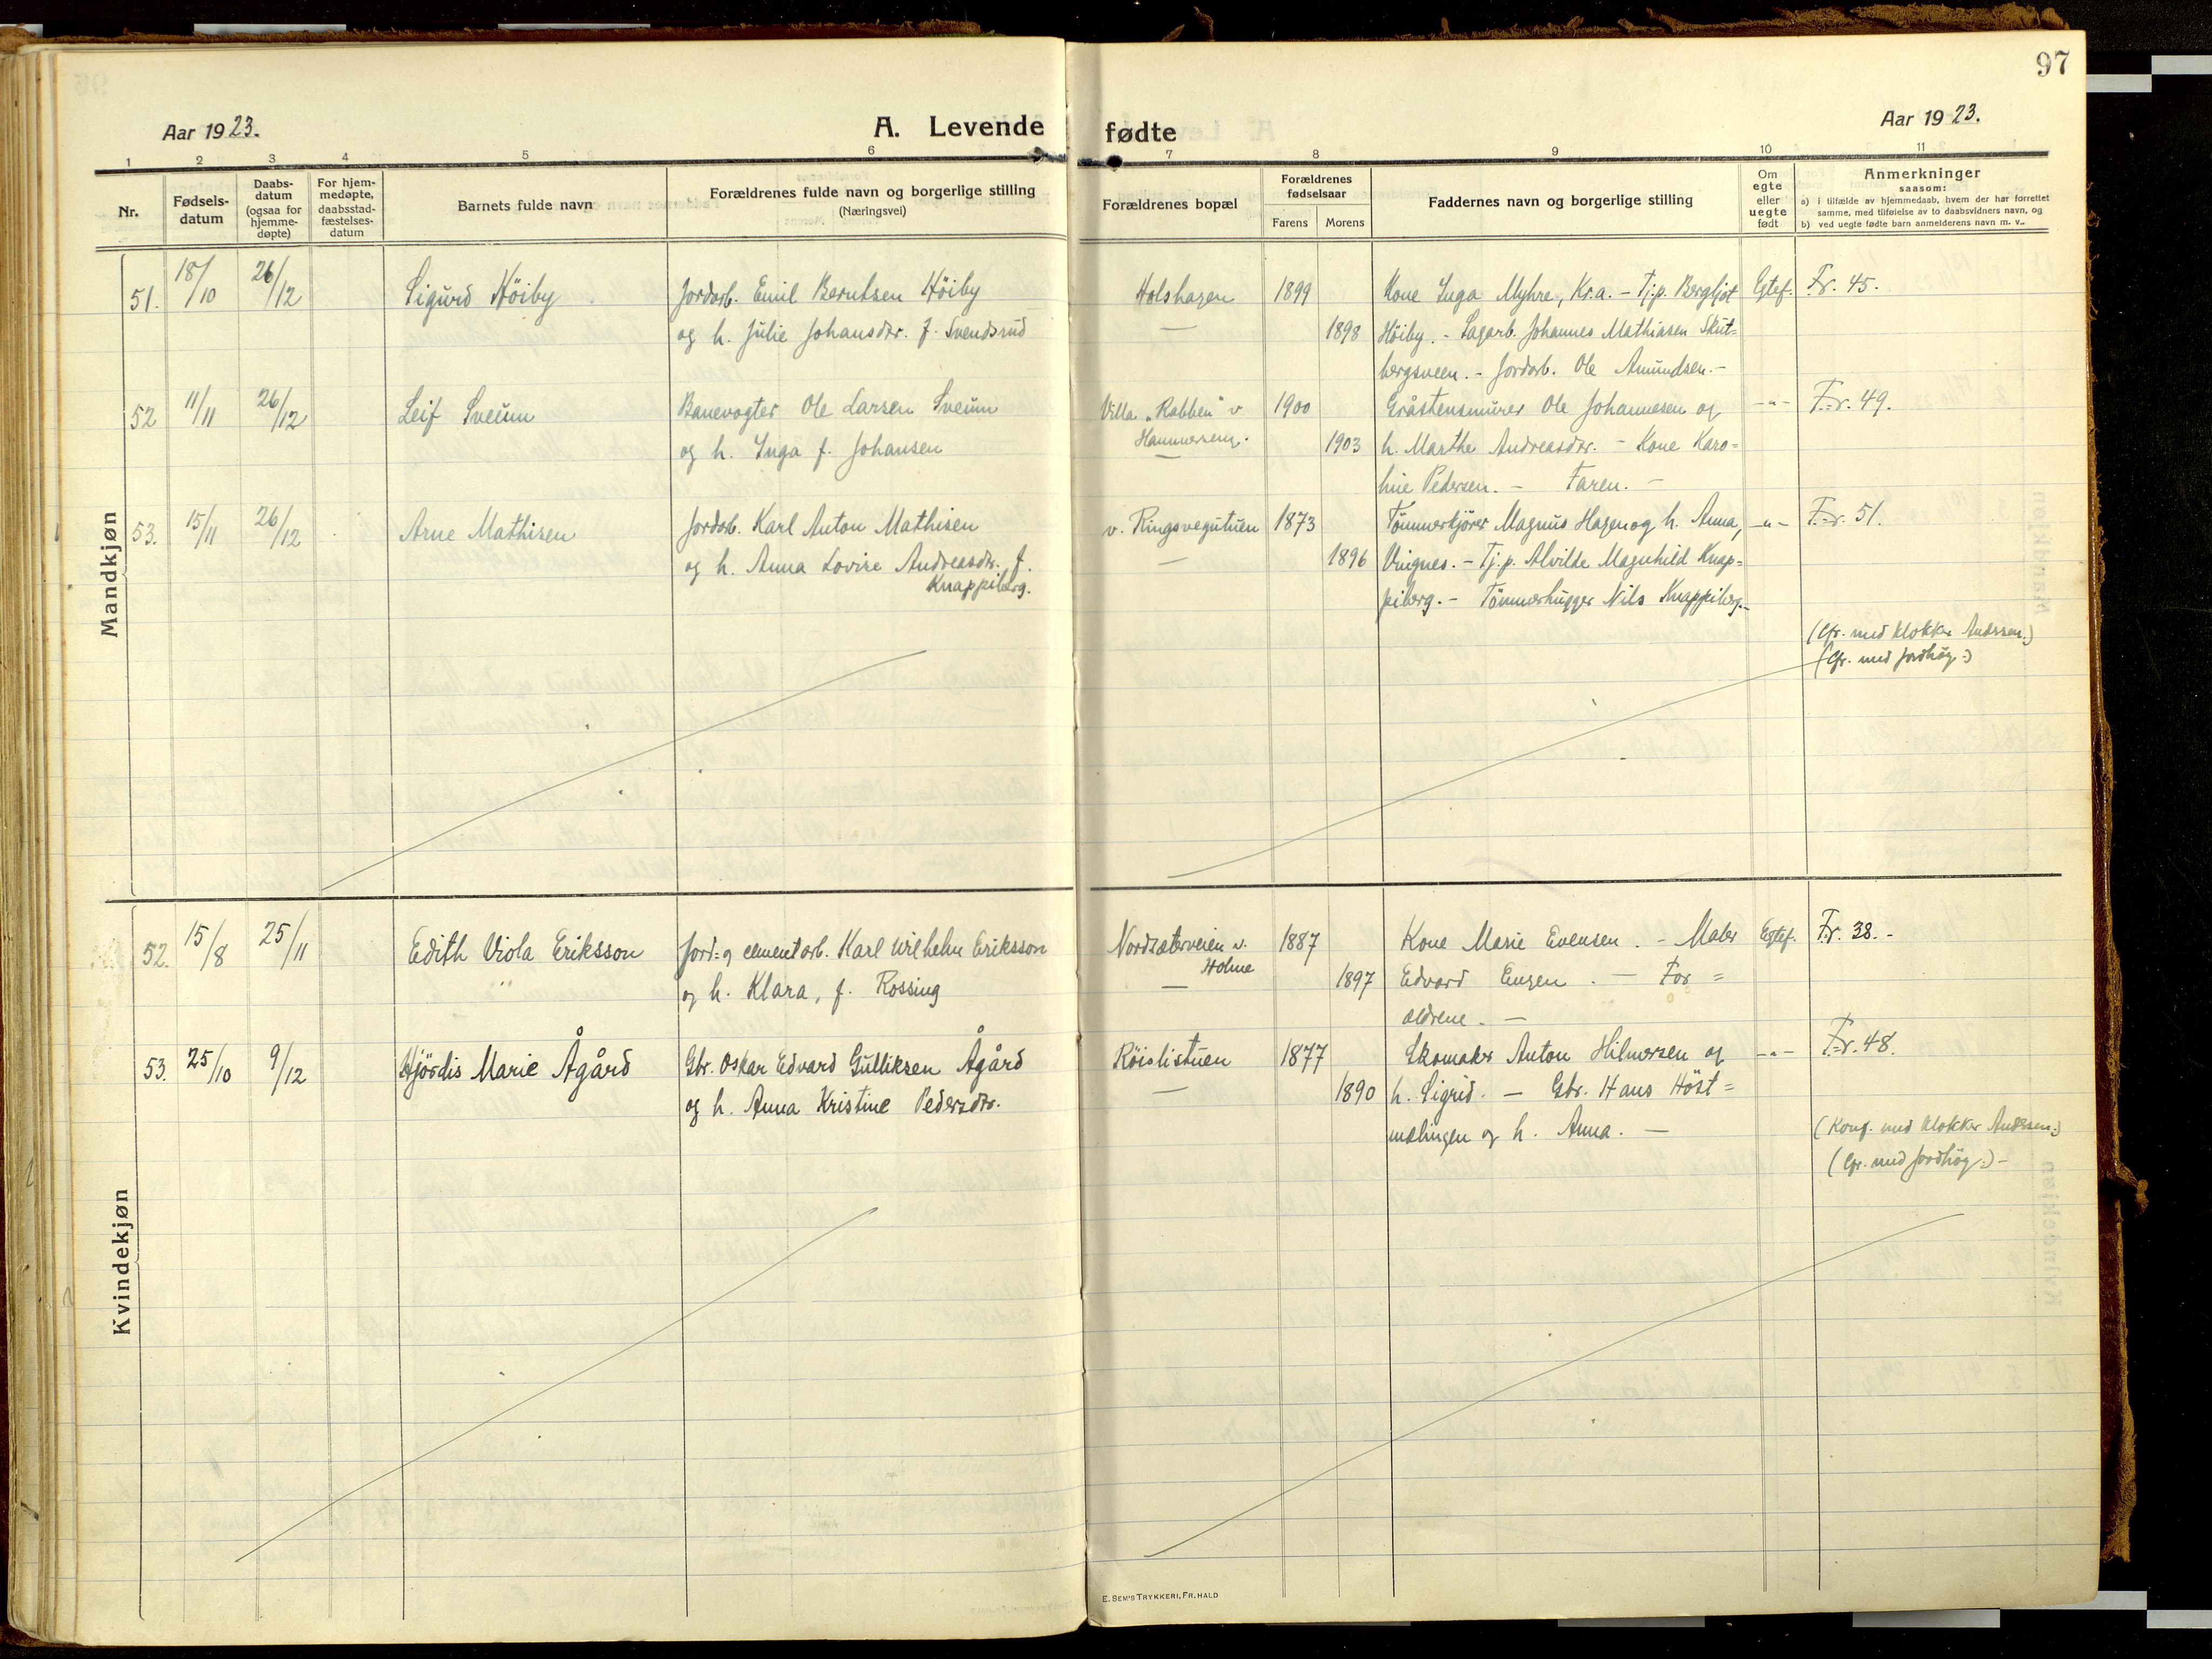 97
Aar 1923.
A. Levende fødte
Aar 1923.
1 2 3 4 5 6 7 8 9 10 11
Nr.
Fødsels-
datum
Daabs-
datum
(ogsaa for
hjemme-
døpte)
For hjem-
medøpte,
daabsstad-
fæstelses-
datum
Barnets fulde navn
Forældrenes fulde navn og borgerlige stilling
(Næringsvei)
Forældrenes bopæl
Forældrenes
fødselsaar
Farens Morens
Faddernes navn og borgerlige stilling
Om
egte
eller
uegte
født
Anmerkninger
saasom:
a) i tilfælde av hjemmedaab, hvem der har forrettet
samme, med tilføielse av to daabsvidners navn, og
b) ved uegte fødte barn anmelderens navn m. v.
Mandkjøn
51. 18/10 26/12 Sigurd Høiby Jordarb. Emil Berntsen Høiby Holshagen 1899 Kone Inga Myhre, Kr.a. - Tj.p. Bergljot Egtef. Fr. 45.
og h. Julie Johansdtr. f. Svendsrud — 1898 Høiby. - Sagarb. Johannes Mathiasen Skut=
bergsveen. - Jordarb. Ole Amundsen. -
52 11/11 26/12 Leif Sveum Banevogter Ole Larsen Sveum Villa „Rabben" v 1900 Gråstensmurer Ole Johannesen og -"- Fr. 49.
og h. Inga f. Johansen Hammereng. 1903 h. Marthe Andreasdtr. - Kone Karo=
line Pedersen. - Faren. -
53. 15/11 26/12 Arne Mathisen Jordarb. Karl Anton Mathisen v. Ringsvegutuen 1873 Tømmerkjører Magnus Hagen og h. Anna, -"- Fr. 51.
og h. Anna Lovise Andreasdtr. f. — 1896 Vingnes. - Tj.p. Alvilde Magnhild Knap=
Knappiberg. piberg. - Tømmerhugger Nils Knappiberg. -
(Cfr. med klokker Andersen.)
(Cfr. med jordhøg:)
Kvindekjøn
52. 15/8 25/11 Edith Viola Eriksson Jord- og cementarb. Karl Wilhelm Eriksson Nordsæterveien v. 1887 Kone Marie Evensen. - Maler Egtef. Fr. 38. -
Holme
og h. Klara, f. Rossing — 1897 Edvard Engen. - For=
ældrene. -
53. 25/10 9/12 Hjördis Marie Ågård Gbr. Oskar Edvard Gulliksen Ågård Röislistuen 1877 Skomaker Anton Hilmersen og -"- Fr. 48.
og h. Anna Kristine Pedersdtr. — 1890 h. Sigrid. - Gbr. Hans Höst=
mælingen og h. Anna. -
(Konf. med klokker Andersen:)
(Cfr. med jordhøg:) -
E. SEM'S TRYKKERI, FR.HALD